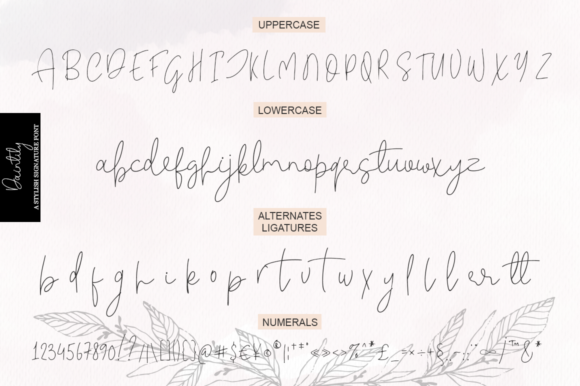 UPPERCASE
ABCDEFGHIJKLMNOPQRSTUVWXYZ
LOWERCASE
abcdefghijklmnopqrstuvwxyz
Daintily
A STYLISH SIGNATURE FONT
ALTERNATES
LIGATURES
b d f g h i k o p r t u t w x y l l l er tt
NUMERALS
1234567890